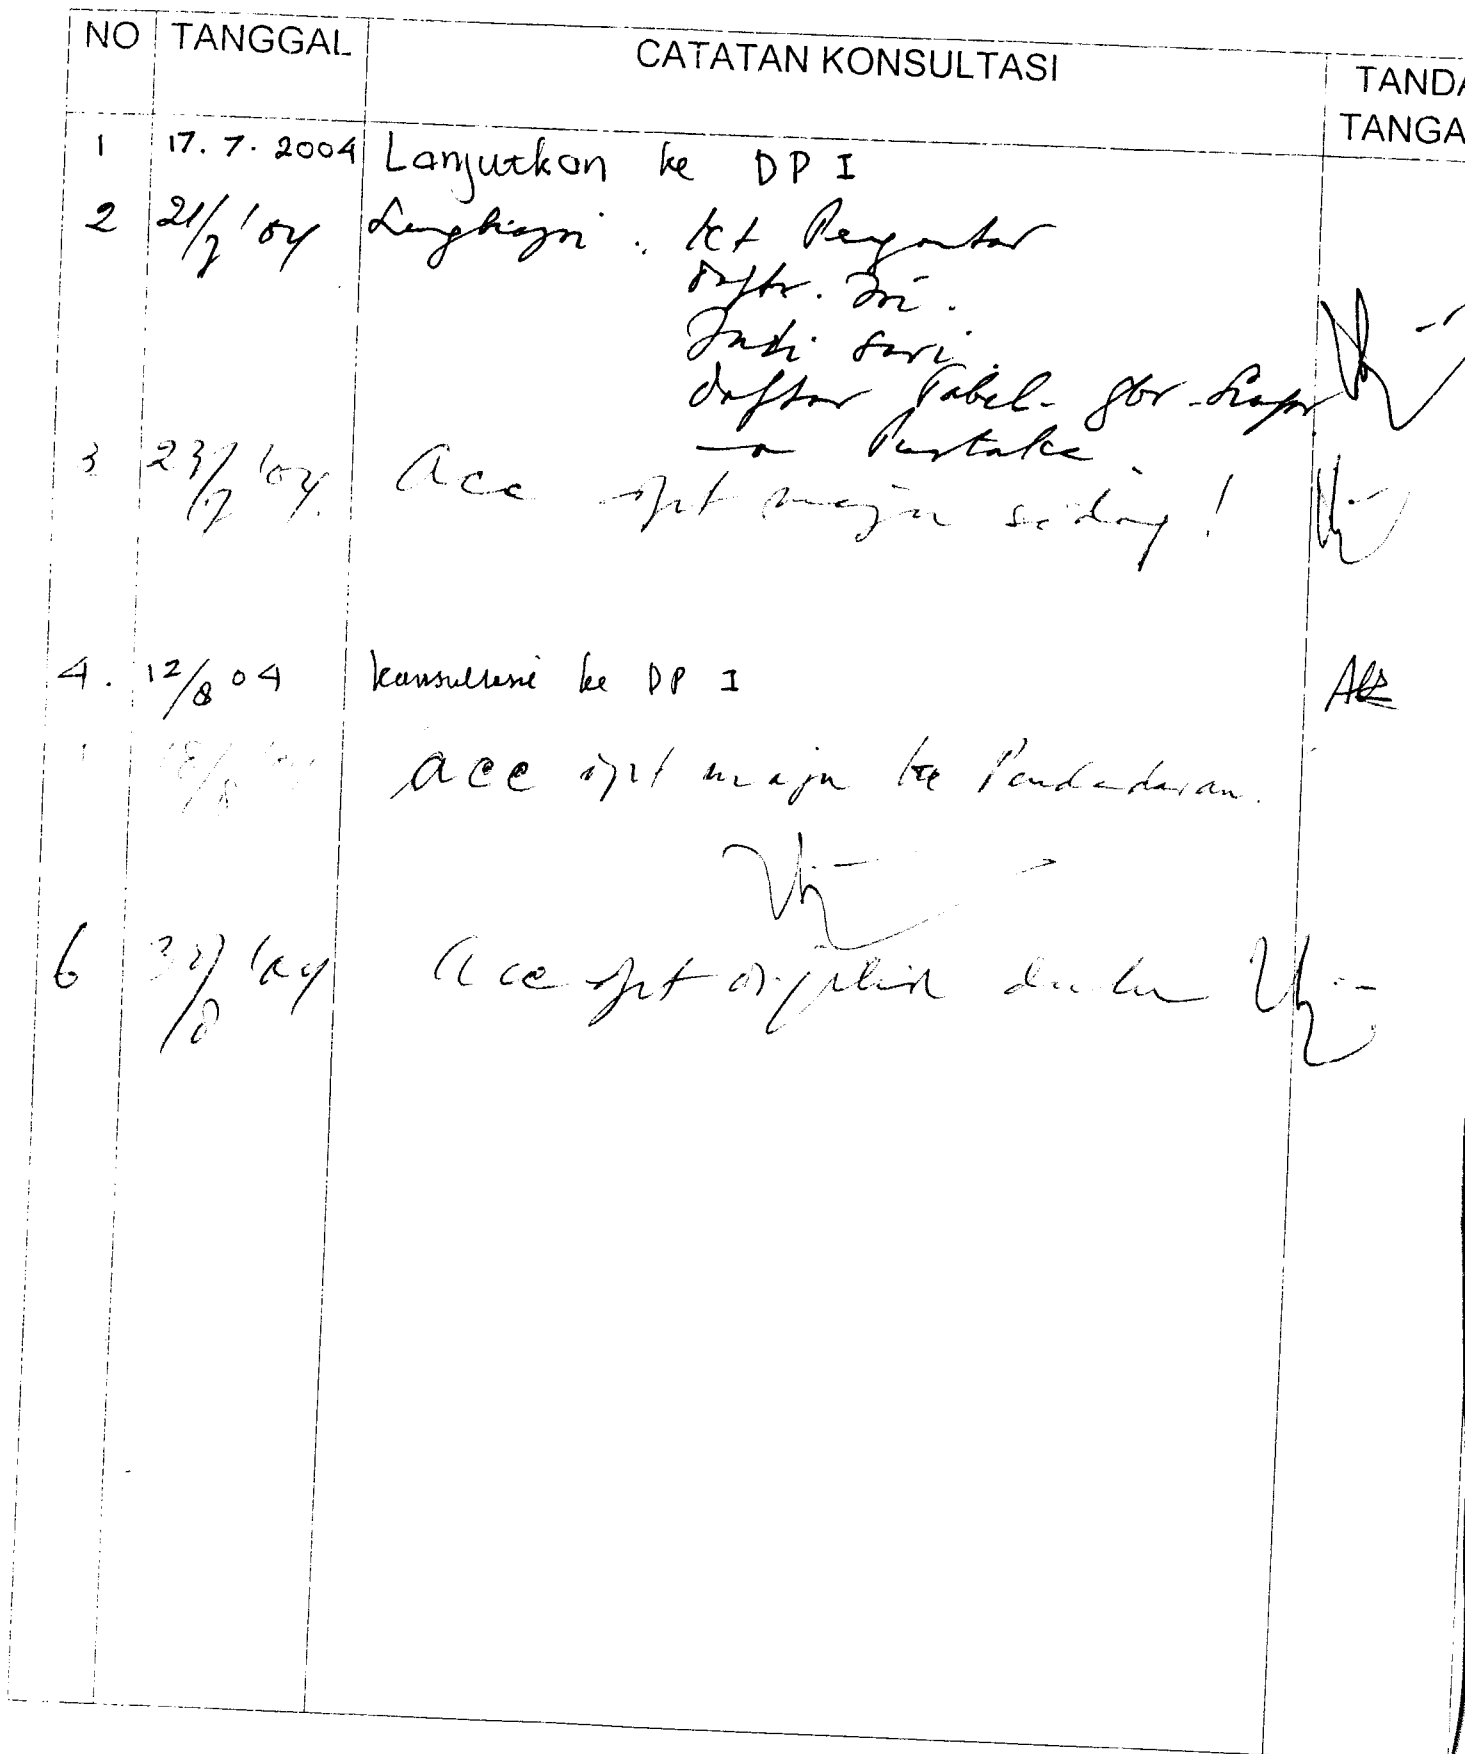 NO TANGGAL CATATAN KONSULTASI TANDA
TANGA
1 17.7.2004 Lanjutkan ke DP I
2 21/7 '04 Lengkapi : Kt Pengantar
Daftr. Isi.
Inti Sari.
Daftar Tabel - gbr -
Pustaka
3 23/7 '04 acc dpt maju sidang !
4. 12/8 04 konsultasi ke DP I
18/8 '04 acc dpt maju ke Pendadaran.
6 30/8 '04 acc dpt dijilid dulu